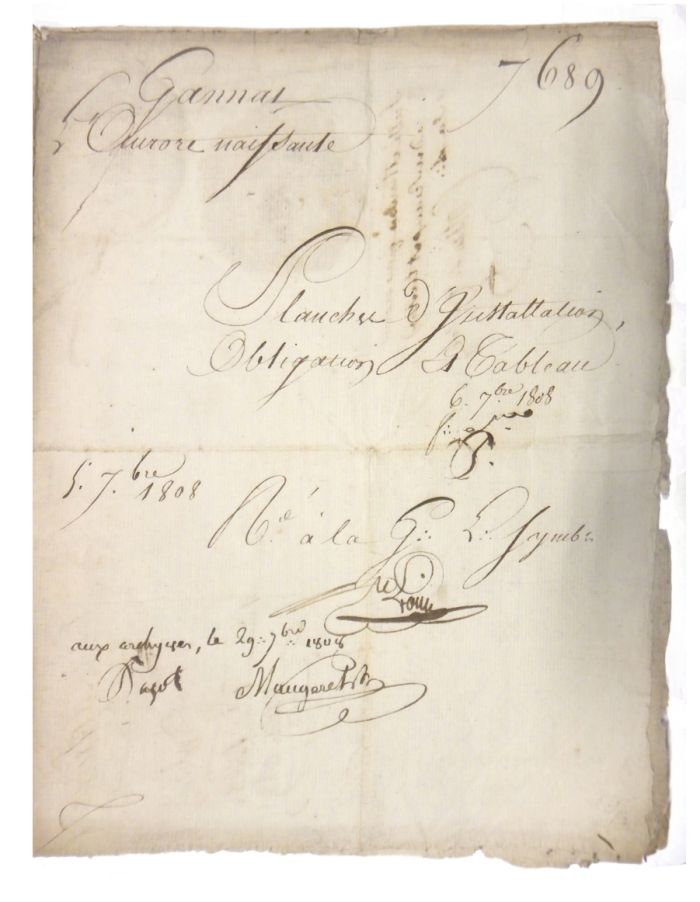 7689
Gannat
L'Aurore naissante
Planche d'Installation,
Obligation & Tableau
6. 7.bre 1808
5. 7.bre 1808
R.ée à la G∴ L∴ Symb∴
aux archives, le 29∴ 7bre 1808
Pagot Maugaret